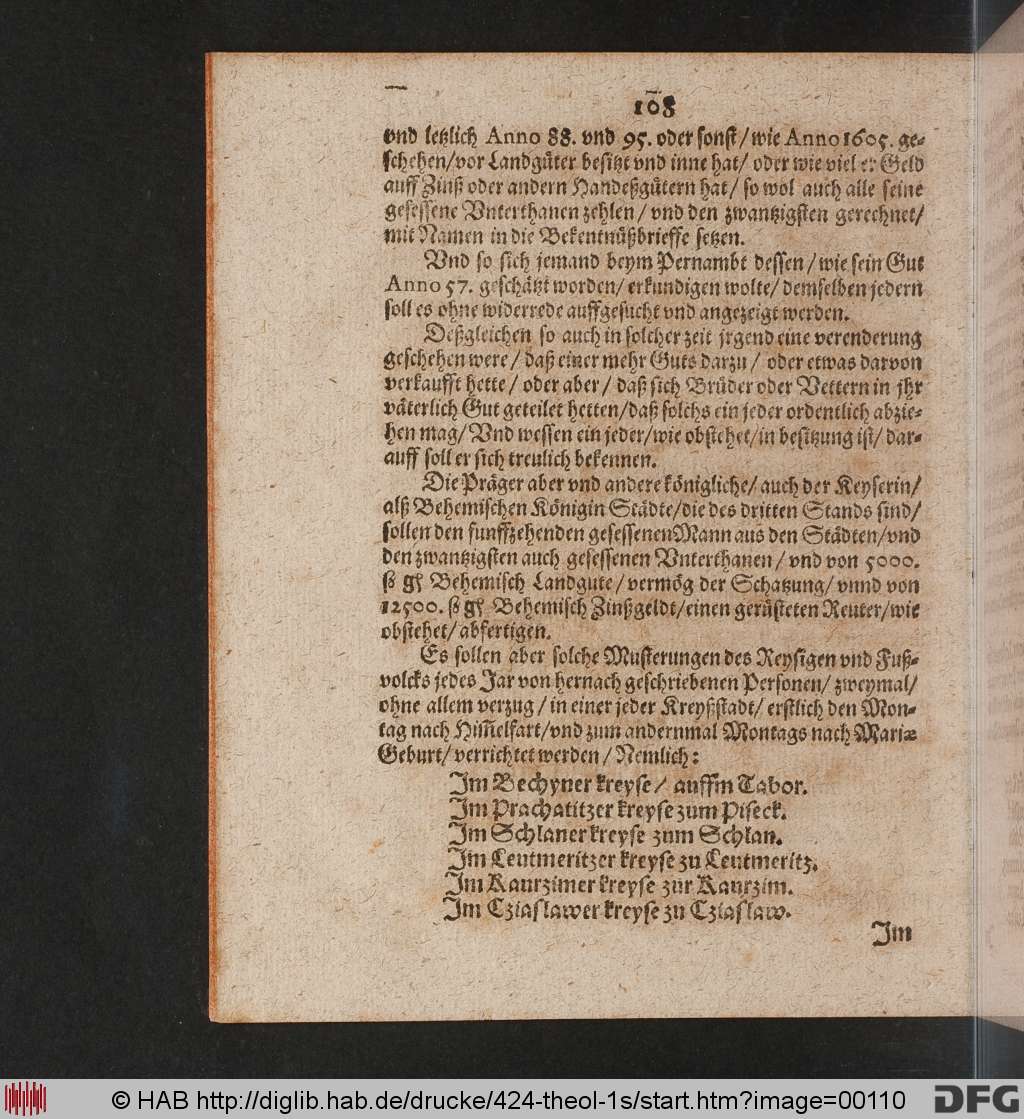 108
vnd letzlich Anno 88. vnd 95. oder sonst/ wie Anno 1605. ge-
schehen/ vor Landgüter besitzt vnd inne hat/ oder wie viel er Geld
auff Zinß oder andern Handeßgütern hat/ so wol auch alle seine
gesessene Vnterthanen zehlen/ vnd den zwantzigsten gerechnet/
mit Namen in die Bekentnüßbrieffe setzen.
Vnd so sich jemand beym Pernambt dessen/ wie sein Gut
Anno 57. geschätzt worden/ erkundigen wolte/ demselben jedern
soll es ohne widerrede auffgesucht vnd angezeigt werden.
Deßgleichen so auch in solcher zeit jrgend eine verenderung
geschehen were/ daß einer mehr Guts darzu/ oder etwas darvon
verkaufft hette/ oder aber/ daß sich Brüder oder Vettern in jhr
väterlich Gut geteilet hetten/ daß solchs ein jeder ordentlich abzie-
hen mag/ Vnd wessen ein jeder/ wie obstehet/ in besitzung ist/ dar-
auff soll er sich treulich bekennen.
Die Präger aber vnd andere königliche/ auch der Keyserin/
alß Behemischen Königin Städte/ die des dritten Stands sind/
sollen den funffzehenden gesessenen Mann aus den Städten/ vnd
den zwantzigsten auch gesessenen Vnterthanen/ vnd von 5000.
ß gř Behemisch Landgute/ vermög der Schatzung/ vnnd von
12500. ß gř Behemisch Zinßgeldt/ einen gerüsteten Reuter/ wie
obstehet/ abfertigen.
Es sollen aber solche Musterungen des Reysigen vnd Fuß-
volcks jedes Jar von hernach geschriebenen Personen/ zweymal/
ohne allem verzug/ in einer jeder Kreyßstadt/ erstlich den Mon-
tag nach Him̃elfart/ vnd zum andernmal Montags nach Mariæ
Geburt/ verrichtet werden/ Nemlich:
Im Bechyner kreyse/ auffm Tabor.
Im Prachatitzer kreyse zum Piseck.
Im Schlaner kreyse zum Schlan.
Im Leutmeritzer kreyse zu Leutmeritz.
Im Kaurzimer kreyse zur Kaurzim.
Im Cziaslawer kreyse zu Cziaslaw.
Im
© HAB http://diglib.hab.de/drucke/424-theol-1s/start.htm?image=00110
DFG